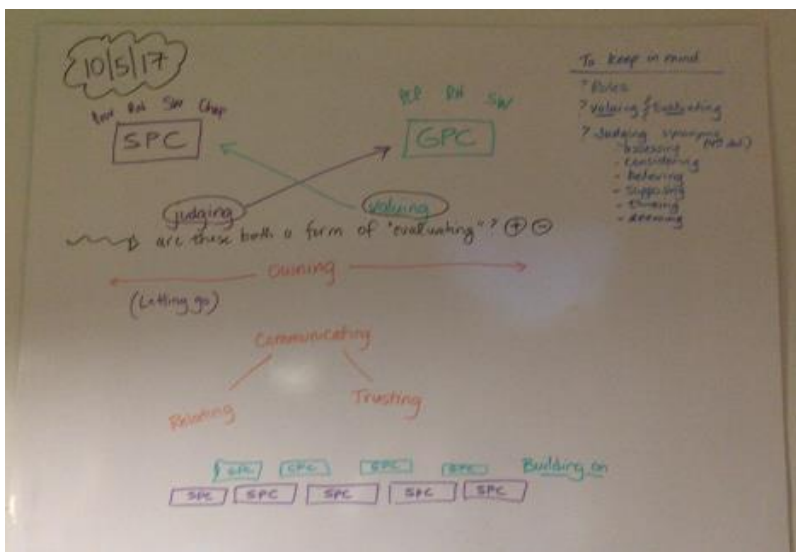 10/5/17
RN SW Chap
SPC
PCP RN SW
GPC
judging
valuing
are these both a form of "evaluating"? + -
owning
(Letting go)
Communicating
Relating
Trusting
GPC GPC GPC GPC Building on
SPC SPC SPC SPC SPC
To keep in mind
? Roles
? Valuing & Evaluating
? Judging synonyms
- assessing
- considering
- believing
- supposing
- thinking
- deeming